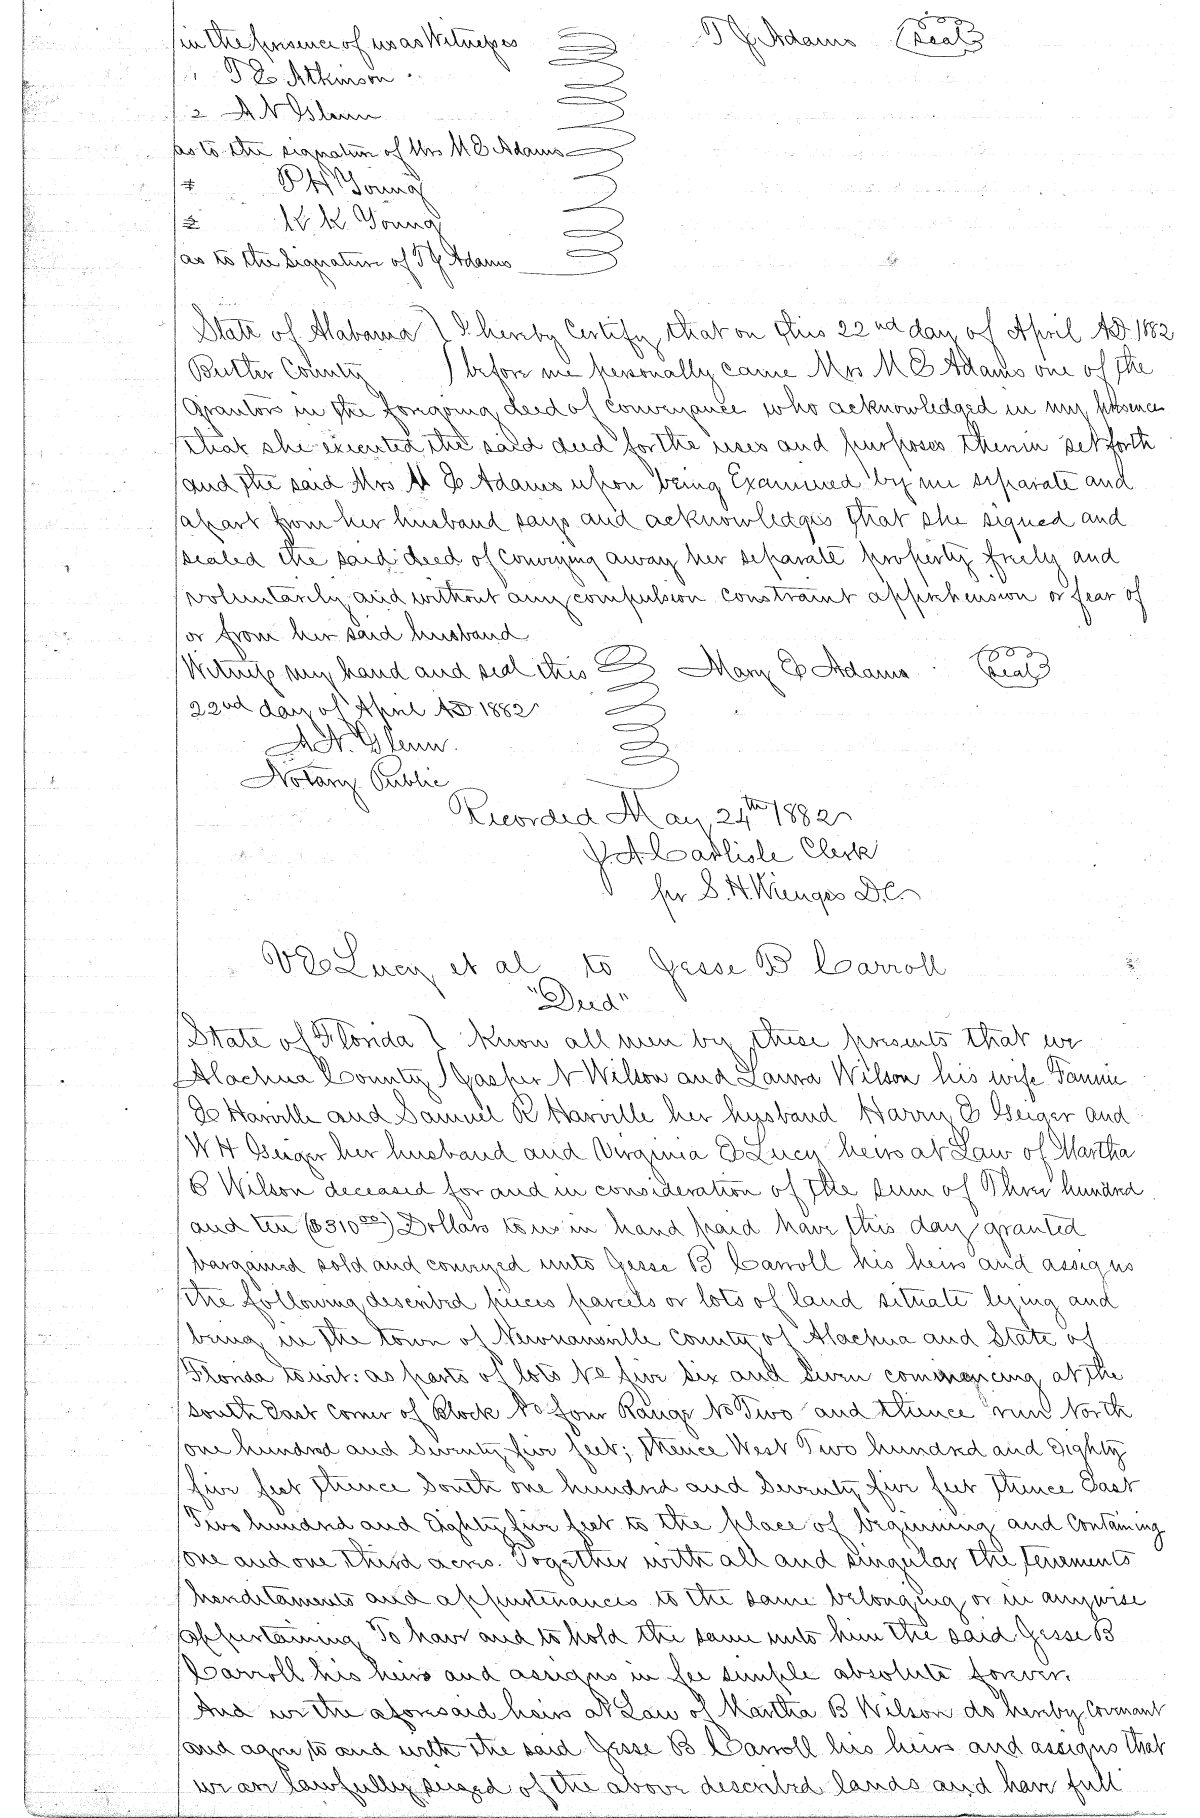 in the presence of us as Witnesses T J Adams (Seal)
1 T E Atkinson
2 A N Glenn
as to the signature of Mrs M E Adams
1 P H Young
2 K K Young
as to the Signature of T J Adams
State of Alabama } I hereby Certify that on this 22nd day of April AD 1882
Butler County } before me personally came Mrs M E Adams one of the
Grantors in the forgoing deed of conveyance who acknowledged in my presence
that she executed the said deed for the uses and purposes therein set forth
and the said Mrs M E Adams upon being Examined by me separate and
apart from her husband says and acknowledges that she signed and
sealed the said deed of Conveying away her separate property freely and
voluntarily and without any compulsion constraint apprehension or fear of
or from her said husband
Witness my hand and seal this Mary E Adams (Seal)
22nd day of April AD 1882
A. N. Glenn.
Notary Public
Recorded May 24th 1882
J. A. Carlisle Clerk
per S. H. Wienges D.C.
V E Lucy et al to Jesse B Carroll
"Deed"
State of Florida } Know all men by these presents that we
Alachua County } Jasper N Wilson and Laura Wilson his wife Fannie
E Harville and Samuel R Harville her husband Harry E Geiger and
W H Geiger her husband and Virginia E Lucy heirs at Law of Martha
B Wilson deceased for and in consideration of the sum of Three hundred
and ten ($310 00) Dollars to us in hand paid have this day granted
bargained sold and conveyed unto Jesse B Carroll his heirs and assigns
the following described pieces parcels or lots of land situate lying and
being in the town of Newnansville County of Alachua and State of
Florida towit: as parts of lots No five six and Seven commencing at the
South East Corner of Block No four Range No Two and thence run North
one hundred and Seventy five feet; thence West Two hundred and Eighty
five feet thence South one hundred and Seventy five feet thence East
Two hundred and Eighty five feet to the place of beginning and Containing
one and one third acres. Together with all and singular the tenements
hereditaments and appurtenances to the same belonging or in anywise
appertaining To have and to hold the same unto him the said Jesse B
Carroll his heirs and assigns in fee simple absolute forever.
And we the aforesaid heirs at Law of Martha B Wilson do hereby Covenant
and agree to and with the said Jesse B Carroll his heirs and assigns that
we are lawfully seized of the above described lands and have full